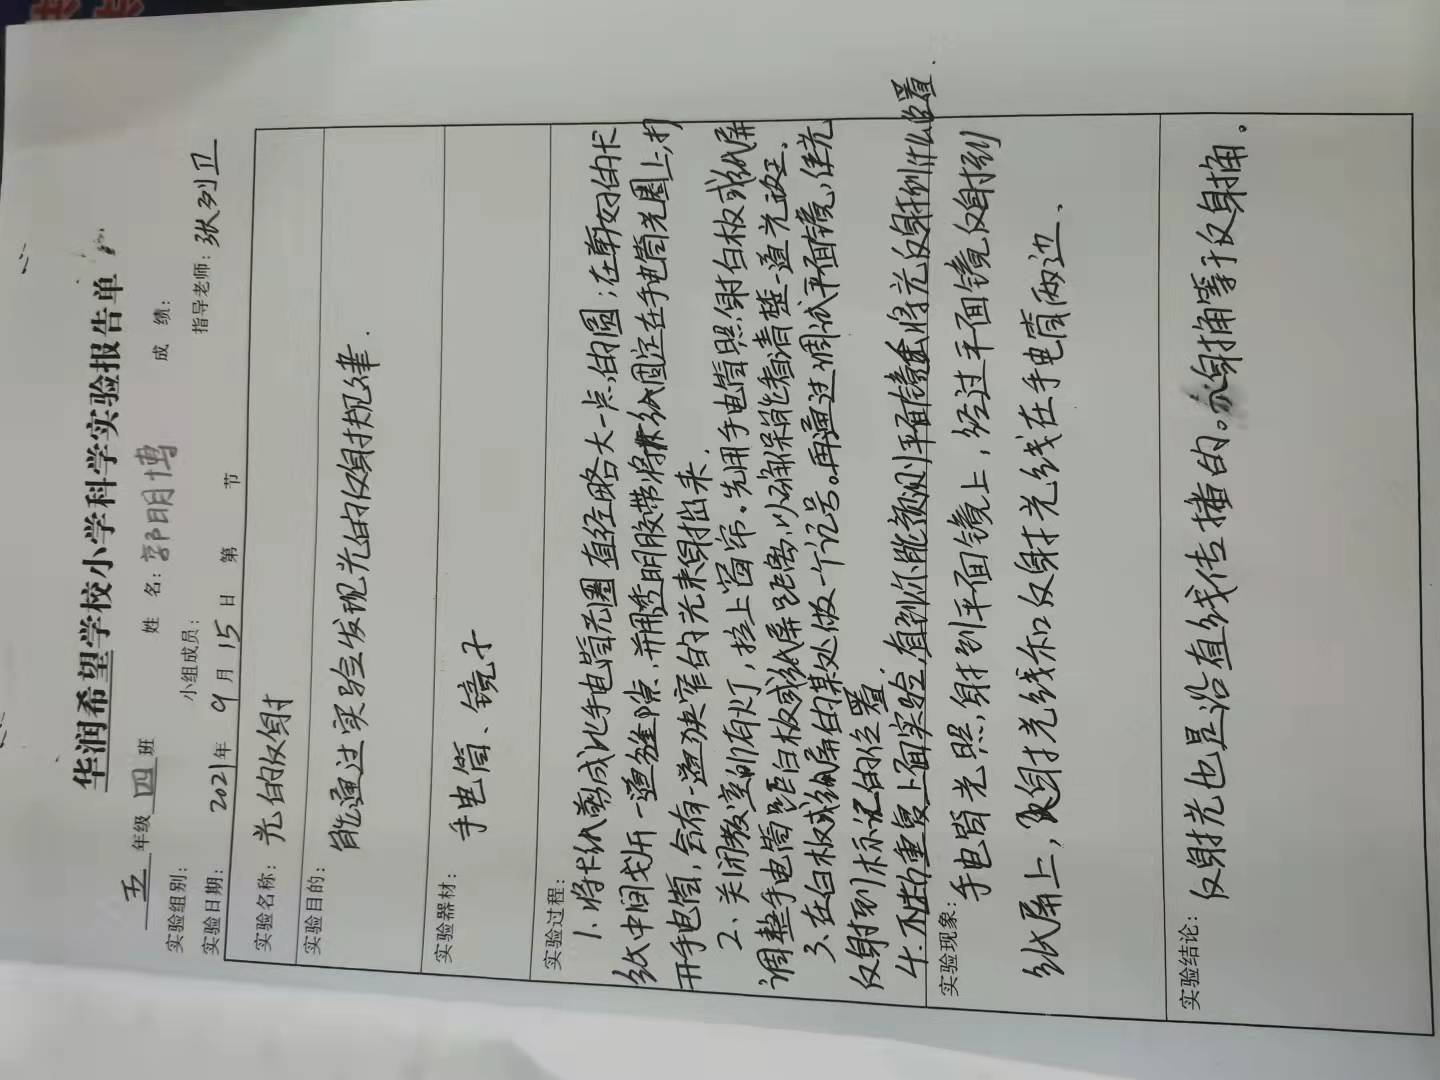 华润希望学校小学科学实验报告单
五年级四班 姓名:郭明博 成绩:
实验组别: 小组成员: 指导老师:张列卫
实验日期: 2021年9月15日 第 节
实验名称:光的反射
实验目的:
能通过实验发现光的反射规律.
实验器材:
手电筒、镜子
实验过程:
1.将卡纸剪成比手电筒光圈直径略大一点的圆;在剪好的卡
纸中间戈斤一道缝隙,并用透明胶带将纸固定在手电筒光圈上,打
开手电筒,会有一道狭窄的光束射出来.
2、关闭教室所有灯,拉上窗帘。先用手电筒照射白板或纸屏
调整手电筒距白板或纸屏距离,以确保能看清楚一道光
3.在白板或纸屏的某处做一个记号。再通过调试平面镜,使光
反射到标记的位置
4.不断重复上面实验,直到你能预测平面镜将光反射到什么位置.
实验现象:
手电筒光照射到平面镜上,经过平面镜反射到
纸屏上,入射光线和反射光线在手电筒两边.
实验结论:
反射光也是沿直线传播的。入射角等于反射角。